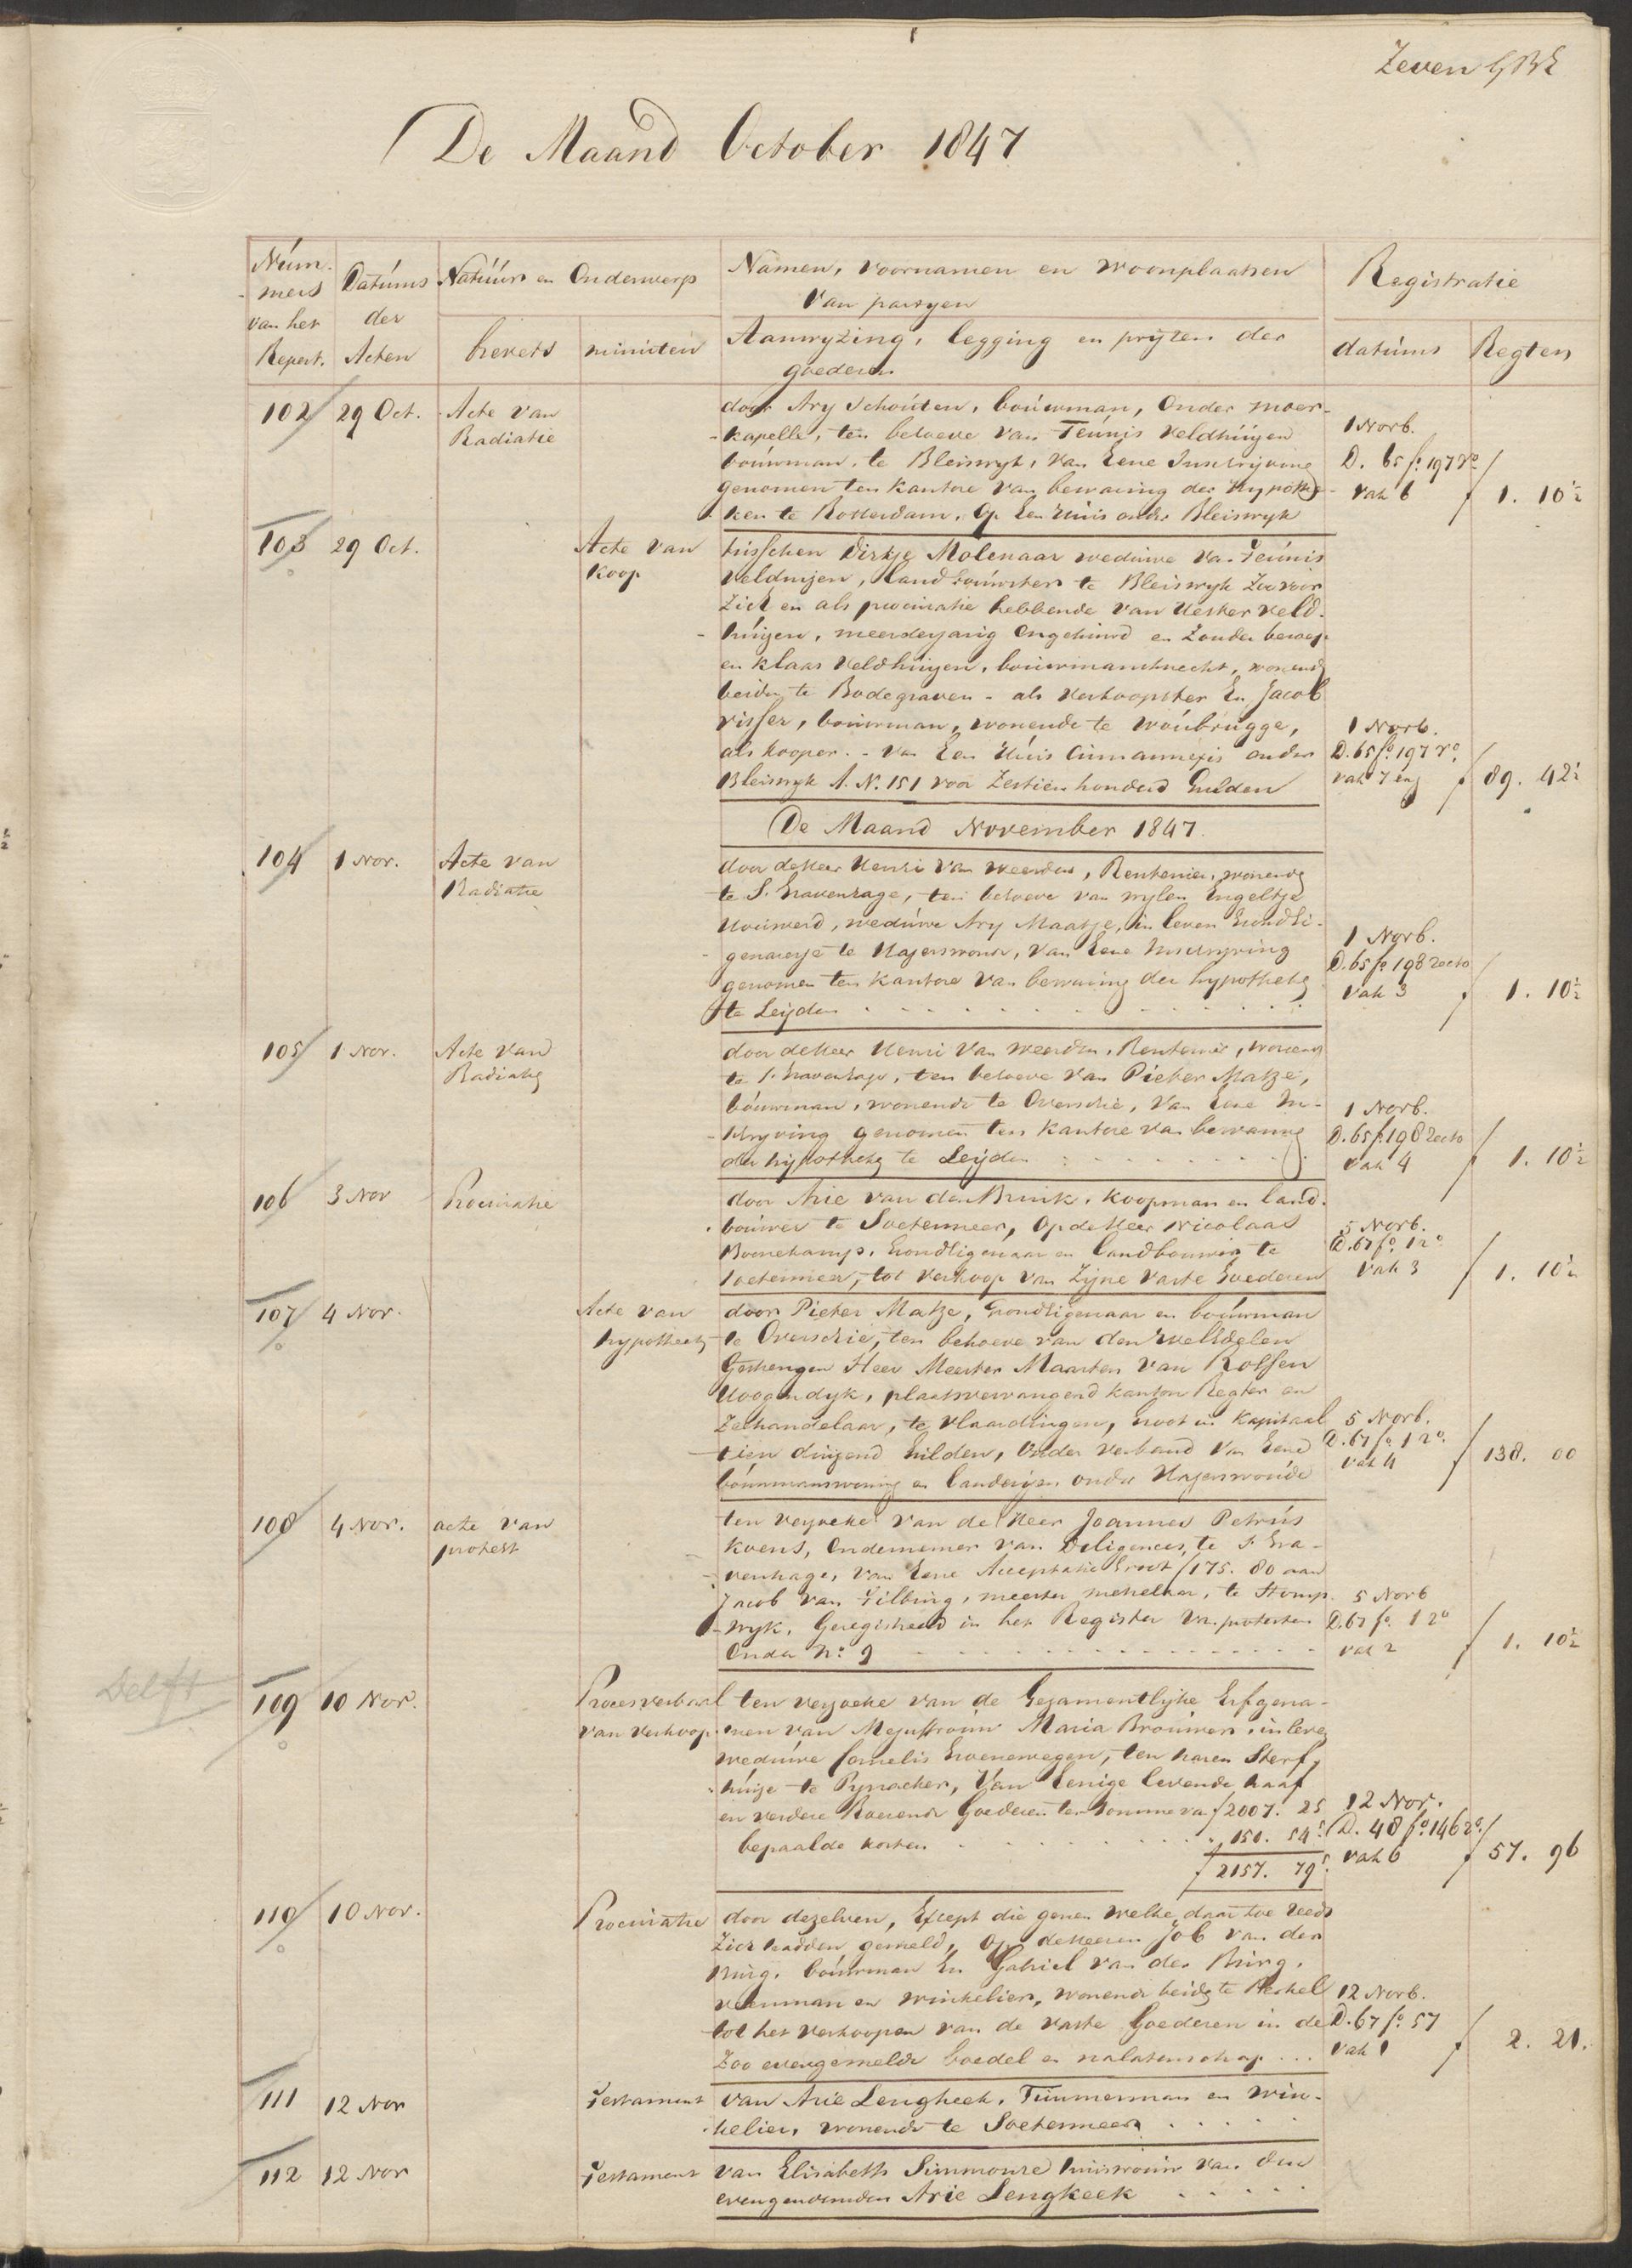 Zeven
De Maand October 1847
Num-
mers
van het
Repert.
Datums
der
Acten
Natuur en Onderwerp
brevets
minuten
Namen, voornamen en woonplaatsen
van partyen
Aanwyzing, legging en pryzen der
goederen
Registratie
datums
Regten
102
29 Oct.
Acte van
Radiatie
door Ary Schouten, bouwman, onder Moer-
kapelle, ten behoeve van Teunis Veldhuijzen
bouwman, te Bleiswyk, van Eene Inschrijving
genomen ten kantore van bewaring der Hypothe-
ken te Rotterdam, op Een Huis onder Bleiswyk
1 Novb.
D. 65 fo. 197 Vo
vak 6
f 1. 10½
103
29 Oct.
Acte van
Koop
tusschen Dirkje Molenaar weduwe van Teunis
Veldhuijzen, Landbouwster te Bleiswyk Zoo voor
Zich en als procuratie hebbende van Hester Veld-
huijzen, meerderjarig Ongehuwd en Zonder beroep
en Klaas Veldhuijzen, bouwmansknecht, wonende
beiden te Bodegraven - als Verkoopster En Jacob
Visser, bouwman, wonende te Woubrugge,
als Kooper. - van Een Huis Cum annexis onder
Bleiswyk A. No. 151 voor Zestien honderd Gulden
1 Novb.
D. 65 fo. 197 Vo.
vak 7 en
f 89. 42½
De Maand November 1847.
104
1 Nov.
Acte van
Radiatie
door de Heer Henri van Weerden, Rentenier, wonende
te S. Gravenhage, ten behoeve van wylen Engeltje
weduwe Ary Maatje, in leven Grondei-
genaresje te Hazerswoude, van Eene Inschryving
genomen ten kantore van bewaring der hypotheken
te Leijden
1 Novb.
D. 65 fo. 198 Recto
vak 3
f 1. 10½
105
1 Nov.
Acte van
Radiatie
door de Heer Henri van Weerden, Rentenier, wonend
te S. Gravenhage, ten behoeve van Pieter Matze,
bouwman, wonende te Overschie, van Eene In-
schryving genomen ten kantore van bewaring
der hypotheken te Leijden
1 Novb.
D. 65 fo. 198 Recto
vak 4
f 1. 10½
106
3 Nov
Procuratie
door Arie van den Brink, koopman en land-
bouwer te Soetermeer, op de Heer Nicolaas
Boonekamp, Grondeigenaar en landbouwer te
Soetermeer, tot verkoop van Zijne vaste Goederen
5 Novb.
D. 67 fo. 1 Ro
vak 3
f 1. 10½
107
4 Nov.
Acte van
hypotheek
door Pieter Matze, Grondeigenaar en bouwman
te Overschie, ten behoeve van den WelEdelen
Gestrengen Heer Meester Maarten van Rossen
Hoogendyk, plaatsvervangend kanton Regter en
Zeehandelaar, te Vlaardingen, groot in kapitaal
tien duizend Gulden, onder verband van Eene
bouwmanswoning en landerijen onder Hazerswoude
5 Novb.
D. 67 fo. 1 Ro.
vak 4
f 138. 00
108
4 Nov.
acte van
protest
ten verzoeke van de Heer Joannes Petrus
Koens, Ondernemer van Deligences, te S Gra-
venhage, van Eene Acceptatie Groot f 175. 80 aan
Jacob van Tilburg, meester metselaar, te Stomp-
wyk, Geregistreerd in het Register van protesten
Onder No. 9
5 Novb
D. 67 fo. 1 Ro
vak 2
f 1. 10½
Delft
109
10 Nov.
Procesverbaal
van verkoop
ten verzoeke van de Gezamentlijke Erfgena-
men van Mejuffrouw Maria Brouwer, in leven
weduwe Cornelis Groenewegen, ten haren Sterf-
huize te Pynacker, van Eenige levende haaf
en verdere Roerende Goederen ter Somme van f 2007. 25
bepaalde kosten 150. 54⁵
f 2157. 79⁵
12 Nov.
D. 48 fo. 146 Ro.
vak 6
f 57. 96
110
10 Nov.
Procuratie
door dezelven, Except die genen welke daar toe reeds
Zich hadden gemeld, op de Heeren Job van der
Burg, bouwman En Gabriel van der Burg,
veenman en winkelier, wonende beide te Berkel
tot het verkoopen van de vaste Goederen in de
Zoo evengemelde boedel en nalatenschap ...
12 Novb.
D. 67 fo. 57
vak 1
f 2. 21.
111
12 Nov
Testament
van Arie Lengkeek, Timmerman en Win-
kelier, wonende te Soetermeer
112
12 Nov
Testament
van Elisabeth Simmonse huisvrouw van den
evengenoemden Arie Lengkeek